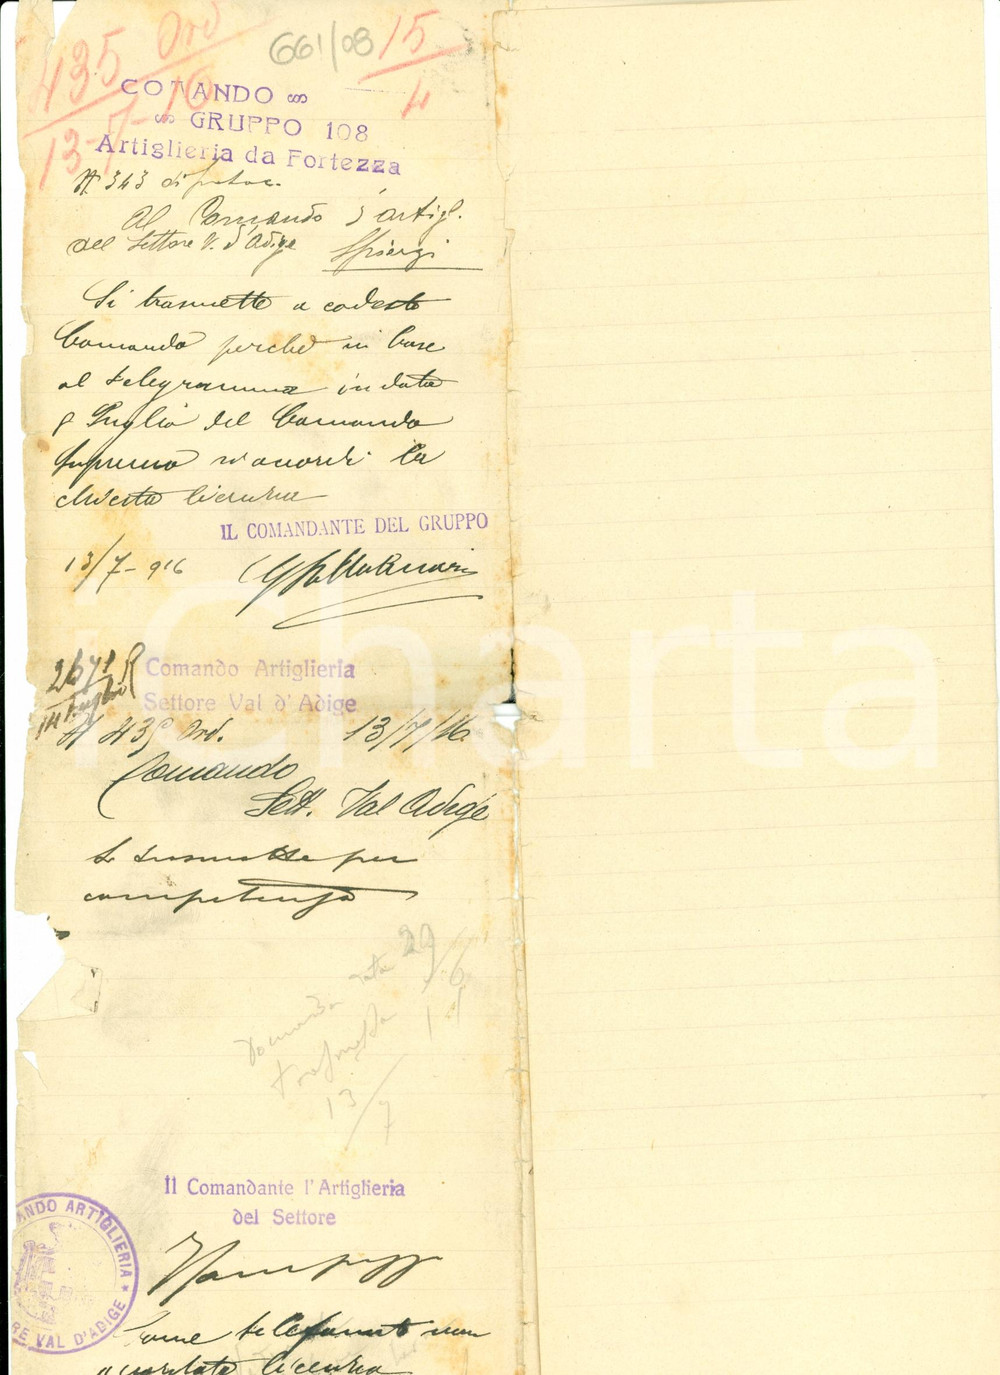 435 Ord
13-7-16
661/08
15
4
COMANDO
GRUPPO 108
Artiglieria da Fortezza
N. 343 di protoc.
Al Comando d'artigl.
del Settore V. d'Adige
Si trasmette a codesto
Comando perché in base
al telegramma in data
Luglio del Comando
Supremo si accordi la
chiesta licenza
IL COMANDANTE DEL GRUPPO
13/7-916
2671 R
14 Luglio
Comando Artiglieria
Settore Val d'Adige
N 435 Ord. 13/7/16
Comando
Sett. Val Adige
Si trasmette per
competenza
Domanda data 29/6
trasmessa
13/7
Il Comandante l'Artiglieria
del Settore
ANDO ARTIGLIERIA
RE VAL D'ADIGE
Come telefonato non
accordata licenza
iCharta